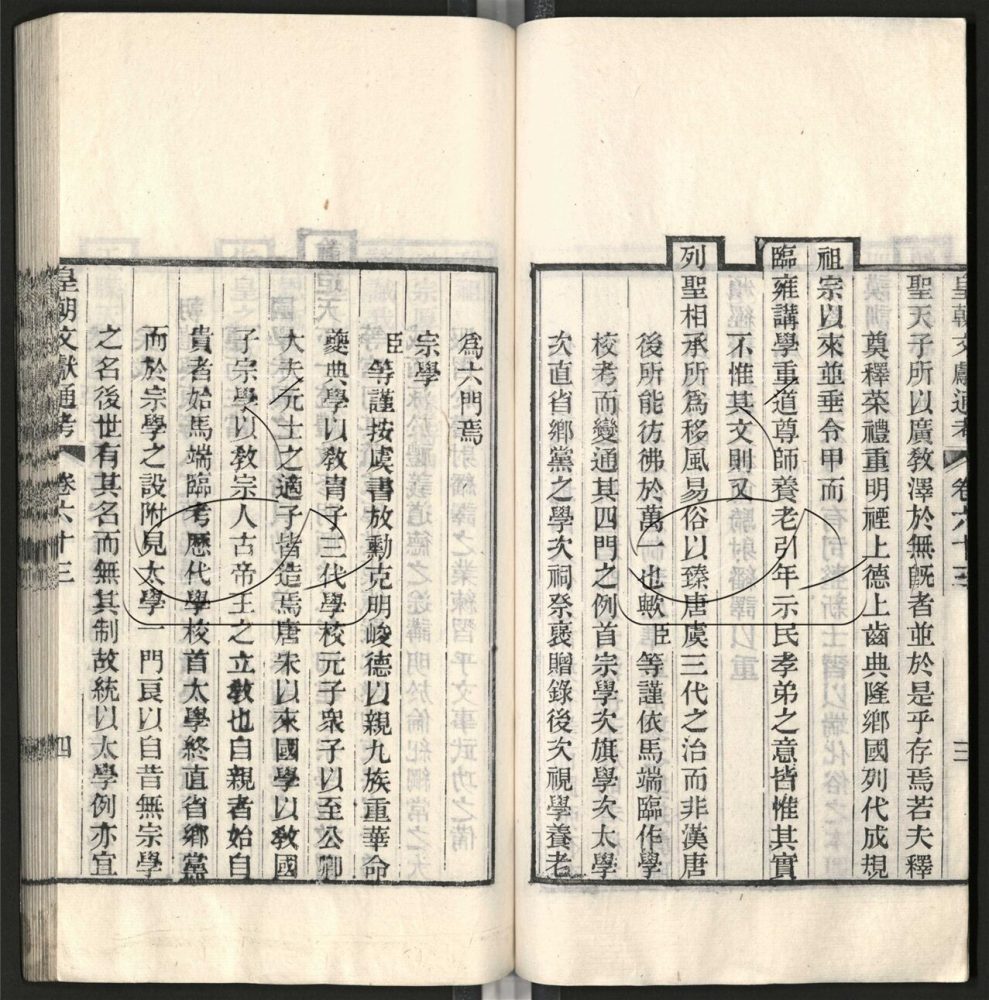 皇朝文獻通考 卷六十三 三
聖天子所以廣敎澤於無旣者並於是乎存焉若夫釋
奠釋菜禮重明禋上德上齒典隆鄉國列代成規
祖宗以來並垂令甲而
臨雍講學重道尊師養老引年示民孝弟之意皆惟其實
不惟其文則又
列聖相承所爲移風易俗以臻唐虞三代之治而非漢唐
後所能彷彿於萬一也歟臣等謹依馬端臨作學
校考而變通其四門之例首宗學次旗學次太學
次直省鄉黨之學次祠祭褒贈錄後次視學養老
爲六門焉
宗學
臣等謹按虞書放勳克明峻德以親九族重華命
夔典學以敎胄子三代學校元子衆子以至公卿
大夫元士之適子皆造焉唐宋以來國學以敎國
子宗學以敎宗人古帝王之立敎也自親者始自
貴者始馬端臨考歷代學校首太學終直省鄉黨
而於宗學之設附見太學一門良以自昔無宗學
之名後世有其名而無其制故統以太學例亦宜
皇朝文獻通考 卷六十三 四